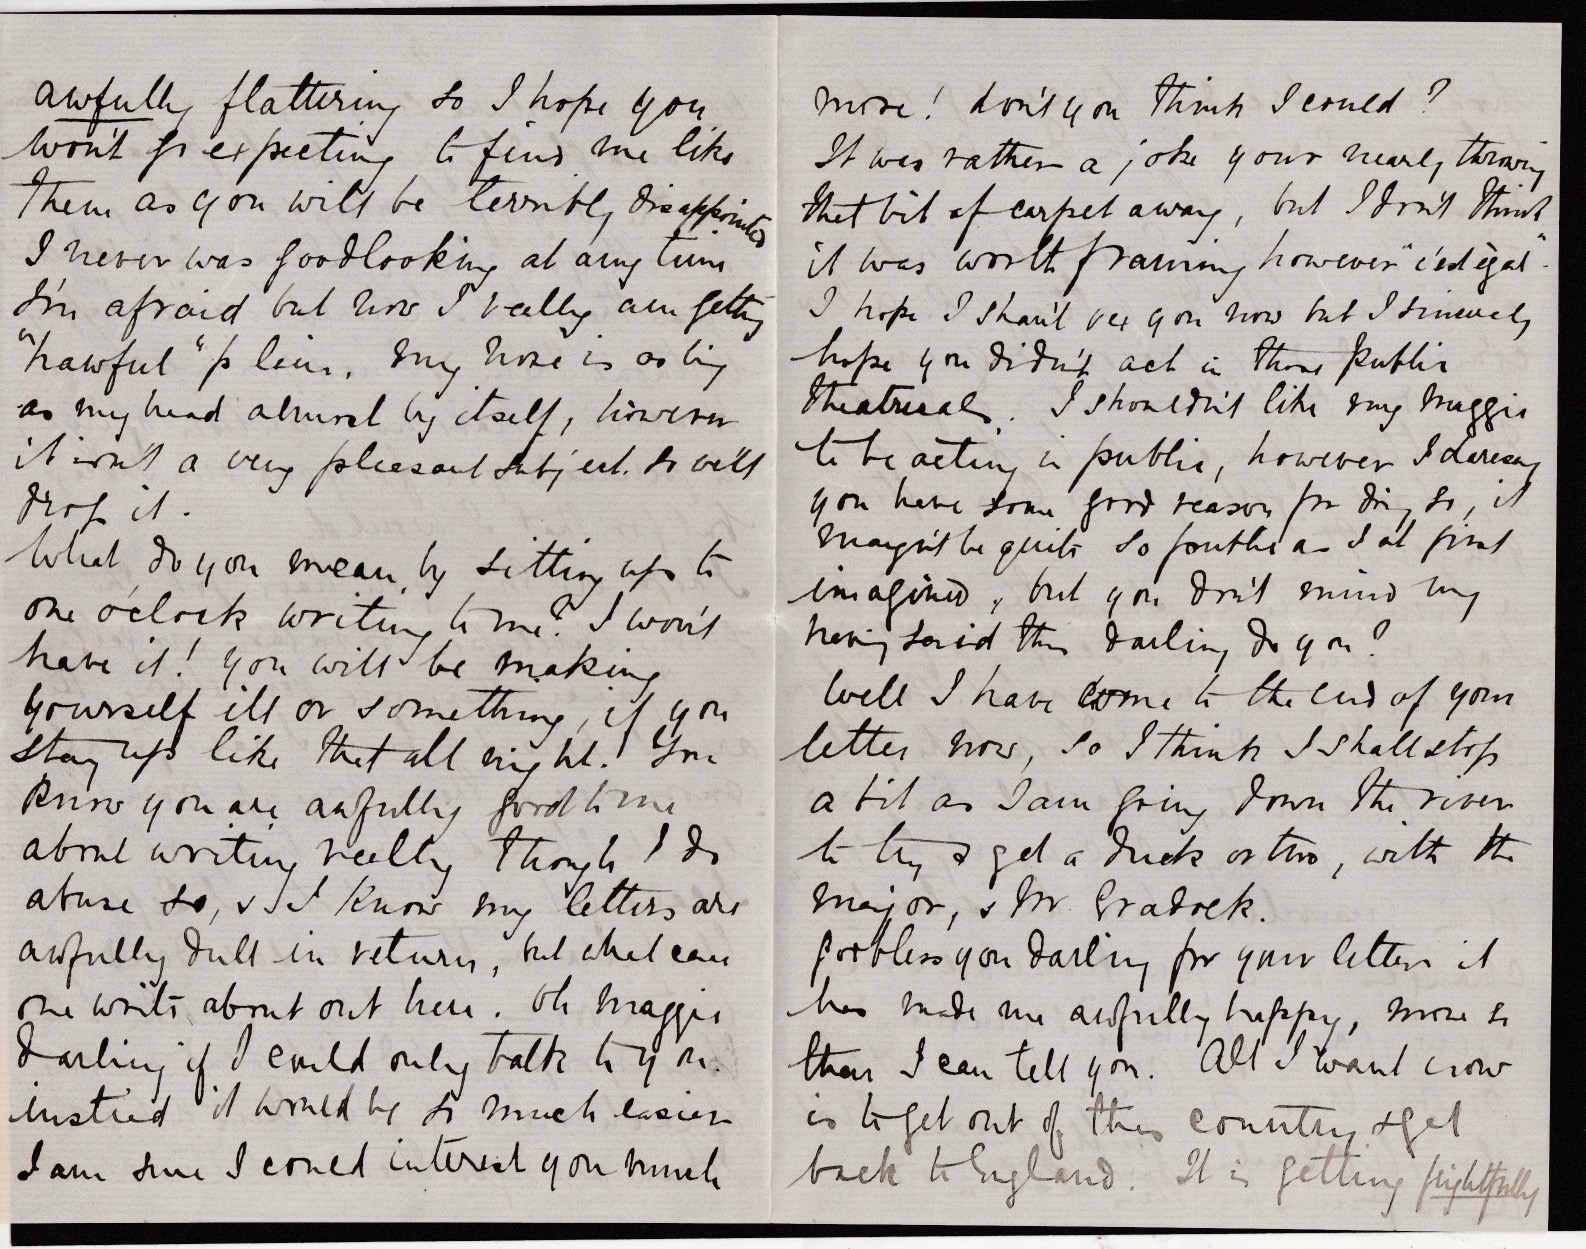 awfully flattering so I hope you
won't go expecting to find me like
them as you will be terribly disappointed
I never was goodlooking at any time
I'm afraid but now I really am getting
"hawful" plain. My nose is as big
as my head almost by itself, however
it isn't a very pleasant subject. so we'll
drop it.
What do you mean by sitting up to
one o'clock writing to me? I won't
have it! you will be making
yourself ill or something, if you
stay up like that all night. You
know you are awfully good to me
about writing really though I do
abuse so, & I know my letters are
awfully dull in return, but what can
one write about out here. Oh Maggie
darling if I could only talk to you
instead it would be so much easier
I am sure I could interest you much
more! don't you think I could?
It was rather a joke your nearly throwing
that bit of carpet away, but I don't think
it was worth framing however "c'est égal"
I hope I shan't vex you now but I sincerely
hope you didn't act in those public
theatricals. I shouldn't like my Maggie
to be acting in public, however I daresay
you have some good reason for doing so, it
mayn't be quite so public as I at first
imagined, but you don't mind my
having said this darling do you?
Well I have come to the end of your
letter now, so I think I shall stop
a bit as I am going down the river
to try & get a duck or two, with the
major, & Mr. Bradock.
God bless you darling for your letter it
has made me awfully happy, more so
than I can tell you. All I want now
is to get out of this country & get
back to England. It is getting frightfully